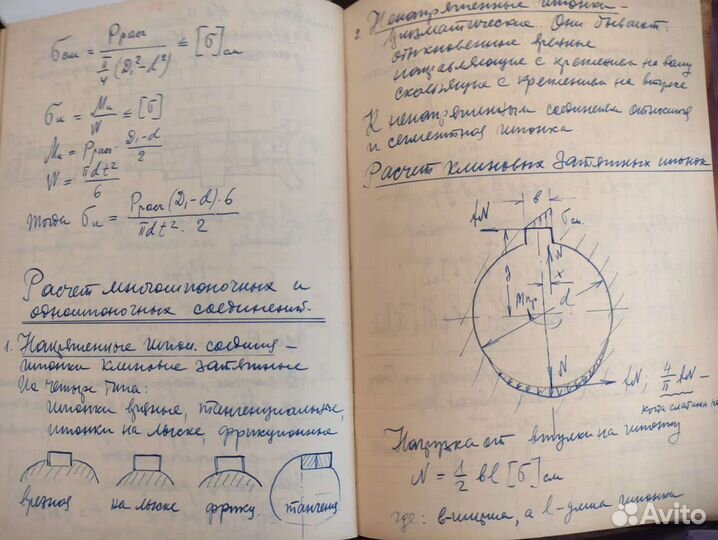 σсм = Pрасч / (π/4 (D₁² - d²)) ≤ [σ]см
σи = Mи / W ≤ [σ]
Mи = Pрасч · (D₁ - d) / 2
W = πdt² / 6
Тогда σи = Pрасч (D₁ - d) · 6 / (πdt² · 2)
Расчет многошпоночных и
одношпоночных соединений.
1. Напряженные шпон. соедин –
шпонки клиновые затяжные
На четыре типа:
шпонки врезные, тангенциальные,
шпонки на лыске, фрикционные
врезная на лыске фрикц тангенц
2. Ненапряженные шпонки –
призматические. Они бывают:
обыкновенные врезные
направляющие с креплением на валу
скользящие с креплением на втулке
К ненапряженным соединениям относится
и сегментная шпонка
Расчет клиновых затяжных шпонок
в
fN σсм.
fN
y x
Mкр d
N
fN; 4/π fN –
когда
Нагрузка от втулки на шпонку
N = 1/2 bl [σ]см
где: в-ширина, а l-длина шпонки
Avito